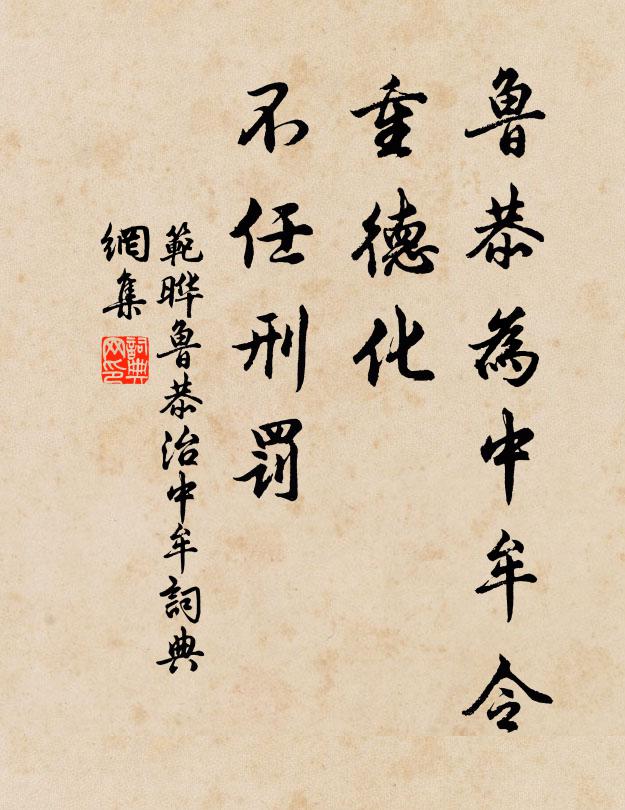 魯恭為中牟令
重德化
不任刑罰
範晔魯恭治中牟詞典
網集
詞典
网印